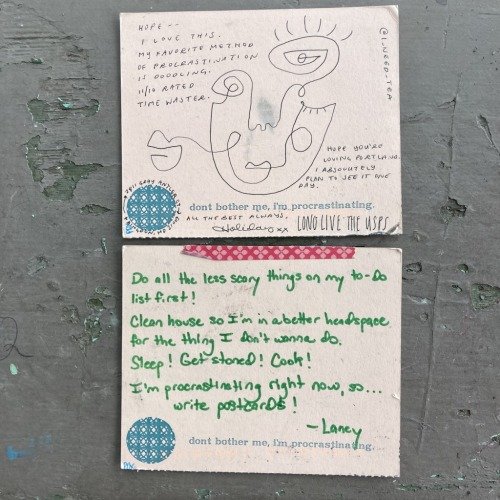 HOPE --
I LOVE THIS.
MY FAVORITE METHOD
OF PROCRASTINATION
IS DOODLING.
11/10 RATED
TIME WASTER.
@I.NEED.TEA
HOPE YOU'RE
LOVING PORTLAND.
I ABSOLUTELY
PLAN TO SEE IT ONE
DAY.
dont bother me, i'm procrastinating.
ALL THE BEST ALWAYS,
Holiday xx
LONG LIVE THE USPS
Do all the less scary things on my to-do
list first!
Clean house so I'm in a better headspace
for the thing I don't wanna do.
Sleep! Get stoned! Cook!
I'm procrastinating right now, so...
write postcards!
- Laney
dont bother me, i'm procrastinating.